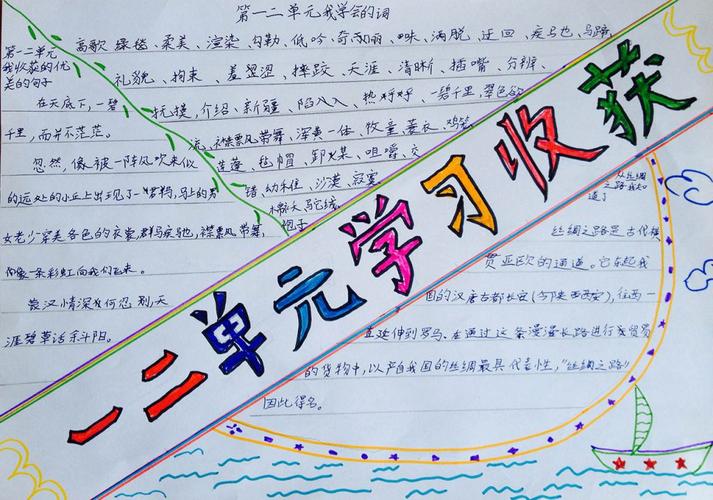 第一二单元我学会的词
高歌、绿毯、柔美、渲染、勾勒、低吟、奇丽、洒脱、迂回、疾马也、马蹄
礼貌、拘束、羞涩、摔跤、天涯、清晰、插嘴、分辨、
抚摸、介绍、新疆、陷入、热乎乎、一碧千里、翠色欲
流、襟飘带舞、浑黄一体、牧童、蓑衣、鸡笼
莲蓬、毡帽、卸火某、咀嚼、交
错、幼木住、沙漠、寂寞
帽子
第一二单元
我收获的优
美的句子
在天底下,一碧
千里,而并不茫茫。
忽然,像被一阵风吹来似
的远处的小丘上出现了一群马,马上的男
女老少穿关各色的衣裳,群马疾马也,襟飘带舞,
向像一条彩虹向我们飞来。
蒙汉情深何忍别,天
涯碧草话斜阳。
一二单元学习收获
从丝绸
之路我知
道了
丝绸之路是古代横
贯亚欧的通道。它东起我
国的汉唐古都长安(今陕西西安),往西一
直延伸到罗马。在通过这条漫漫长路进行交贸易
的货物中,以产自我国的丝绸最具代表性,“丝绸之路”
因此得名。